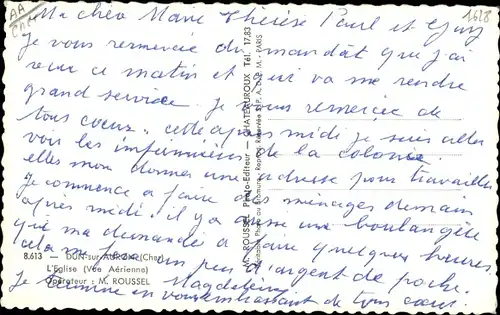 AA
1628
Ma chère Marie Thérèse Paul et Guy
Je vous remercie du mandat que j'ai
reçu ce matin et qui va me rendre
grand service. Je vous remercie de
tous coeur. cette après midi je suis aller
voir les infirmières de la colonie
elles mon donner une adresse pour travailler
Je commence a faire des ménages demain
après midi. il y a aussi une boulangère
qui ma demandé a faire quelques heures
cela me fera un peu d'argent de poche.
Je termine en vous embrassant de tous coeur.
Magdeleine
8.613 — DUN-sur-AURON (Cher)
L'Eglise (Vue Aérienne)
Opérateur : M. ROUSSEL
M. ROUSSEL Photo-Editeur — CHATEAUROUX Tél. 17.83
Véritable Photo au Bromure, Reprod. Réservée
PARIS